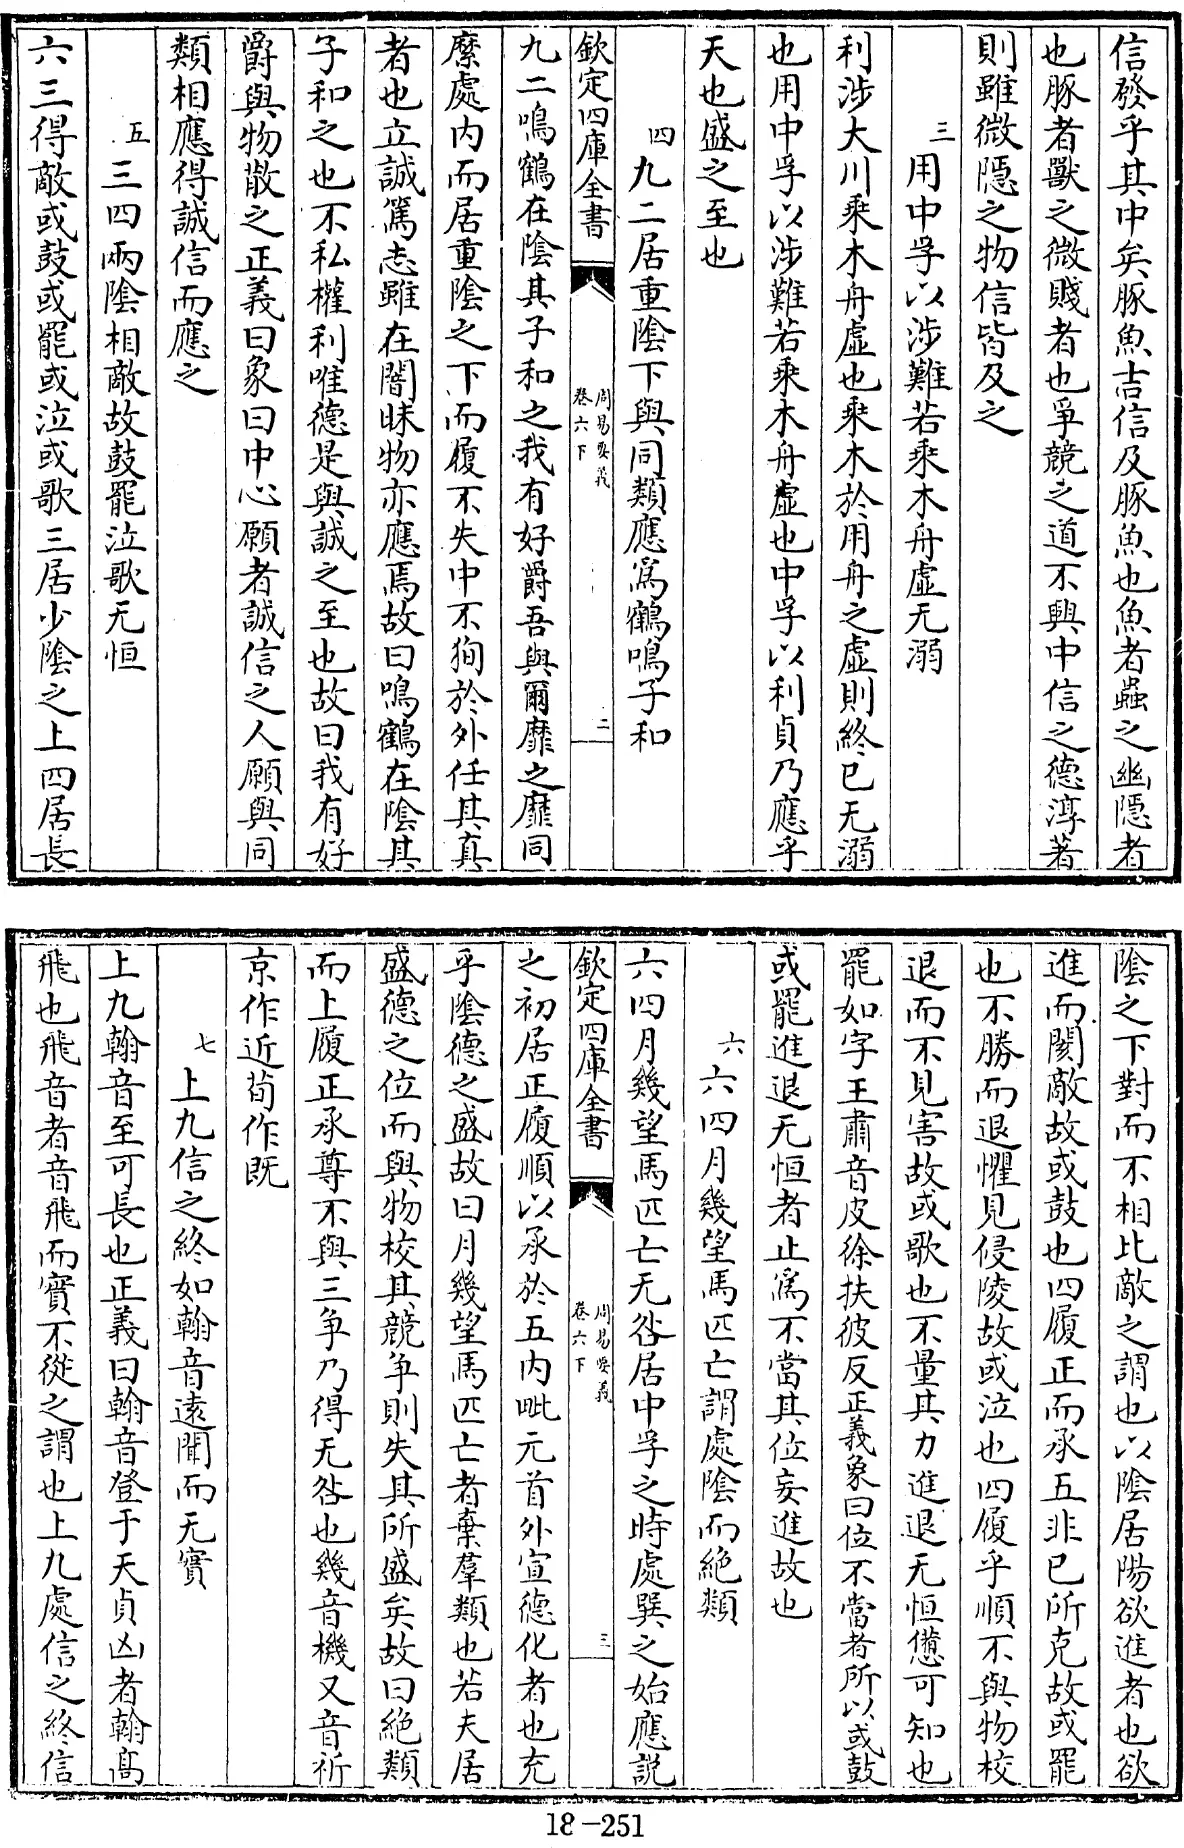 信發乎其中矣豚魚吉信及豚魚也魚者蟲之幽隱者
也豚者獸之微賤者也爭競之道不興中信之德淳著
則雖微隱之物信皆及之
三用中孚以涉難若乘木舟虛无溺
利涉大川乘木舟虛也乘木於用舟之虛則終已无溺
也用中孚以涉難若乘木舟虛也中孚以利貞乃應乎
天也盛之至也
四九二居重陰下與同類應為鶴鳴子和
欽定四庫全書 周易要義卷六下 二
九二鳴鶴在陰其子和之我有好爵吾與爾靡之靡同
縻處内而居重陰之下而履不失中不狥於外任其真
者也立誠篤志雖在闇昧物亦應焉故曰鳴鶴在陰其
子和之也不私權利唯德是與誠之至也故曰我有好
爵與物散之正義曰象曰中心願者誠信之人願與同
類相應得誠信而應之
五三四兩陰相敵故鼓罷泣歌无恒
六三得敵或鼓或罷或泣或歌三居少陰之上四居長
陰之下對而不相比敵之謂也以陰居陽欲進者也欲
進而閡敵故或鼓也四履正而承五非已所克故或罷
也不勝而退懼見侵陵故或泣也四履乎順不與物校
退而不見害故或歌也不量其力進退无恒憊可知也
罷如字王肅音皮徐扶彼反正義象曰位不當者所以或鼓
或罷進退无恒者止為不當其位妄進故也
六六四月幾望馬匹亡謂處陰而絶類
六四月幾望馬匹亡无咎居中孚之時處巽之始應說
欽定四庫全書 周易要義卷六下 三
之初居正履順以承於五内毗元首外宣德化者也充
乎陰德之盛故曰月幾望馬匹亡者棄羣類也若夫居
盛德之位而與物校其競争則失其所盛矣故曰絶類
而上履正承尊不與三争乃得无咎也幾音機又音祈
京作近荀作既
七上九信之終如翰音遠聞而无實
上九翰音至可長也正義曰翰音登于天貞凶者翰髙
飛也飛音者音飛而實不從之謂也上九處信之終信
18-251